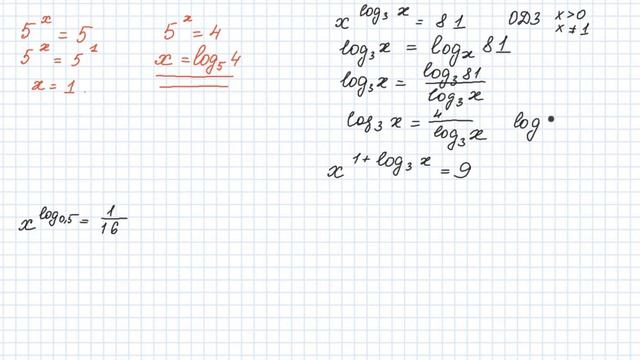 5^x = 5
5^x = 5^1
x = 1
5^x = 4
x = log₅4
x^(log₃x) = 81 ОДЗ x>0
x≠1
log₃x = logₓ81
log₃x = log₃81/log₃x
log₃x = 4/log₃x log
x^(1+log₃x) = 9
x^(log₀,₅) = 1/16